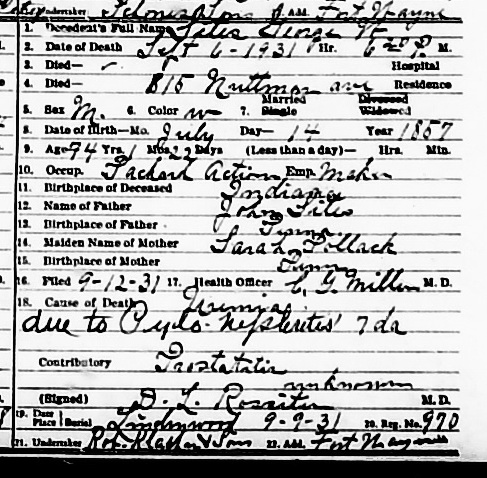 Undertaker & Sons Add. Fort Wayne
1. Decedent's Full Name Files George W
2. Date of Death Sept 6-1931 Hr. 6 20 P. M.
3. Died— Hospital
4. Died— 815 Nuttman ave Residence
5. Sex M. 6. Color W 7. Married Single Divorced Widowed
8. Date of Birth—Mo. July Day— 14 Year 1857
9. Age 74 Yrs. 1 Mos. 22 Days (Less than a day)— Hrs. Min.
10. Occup. Packard Action Emp. Maker
11. Birthplace of Deceased Indiana
12. Name of Father John Files
13. Birthplace of Father
14. Maiden Name of Mother Sarah Pollack
15. Birthplace of Mother
16. Filed 9-12-31 17. Health Officer C. G. Miller M. D.
18. Cause of Death Uremia
due to Pyelo-nephritis 7 da
Contributory Prostatitis
unknown
(Signed) D. L. Rossiter M. D.
19. Date Place Burial Lindenwood 9-9-31 20. Reg. No. 970
21. Undertaker Rob. Klaehn & Sons 22. Add. Fort Wayne